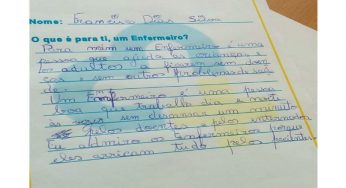 Nome: Francisco Dias Silva
O que é para ti, um Enfermeiro?
Para mim um Enfermeiro é uma
pessoa que ajuda as crianças e
os adultos a ficarem sem doen
ças e sem outros problemas de saú
de.
Um Enfermeiro é uma pessoa
boa que trabalha dia e noite
sem descansar um minuto
pelos doentes e pelos internados
Eu admiro os enfermeiros porque
eles arriscam tudo pelos pacientes